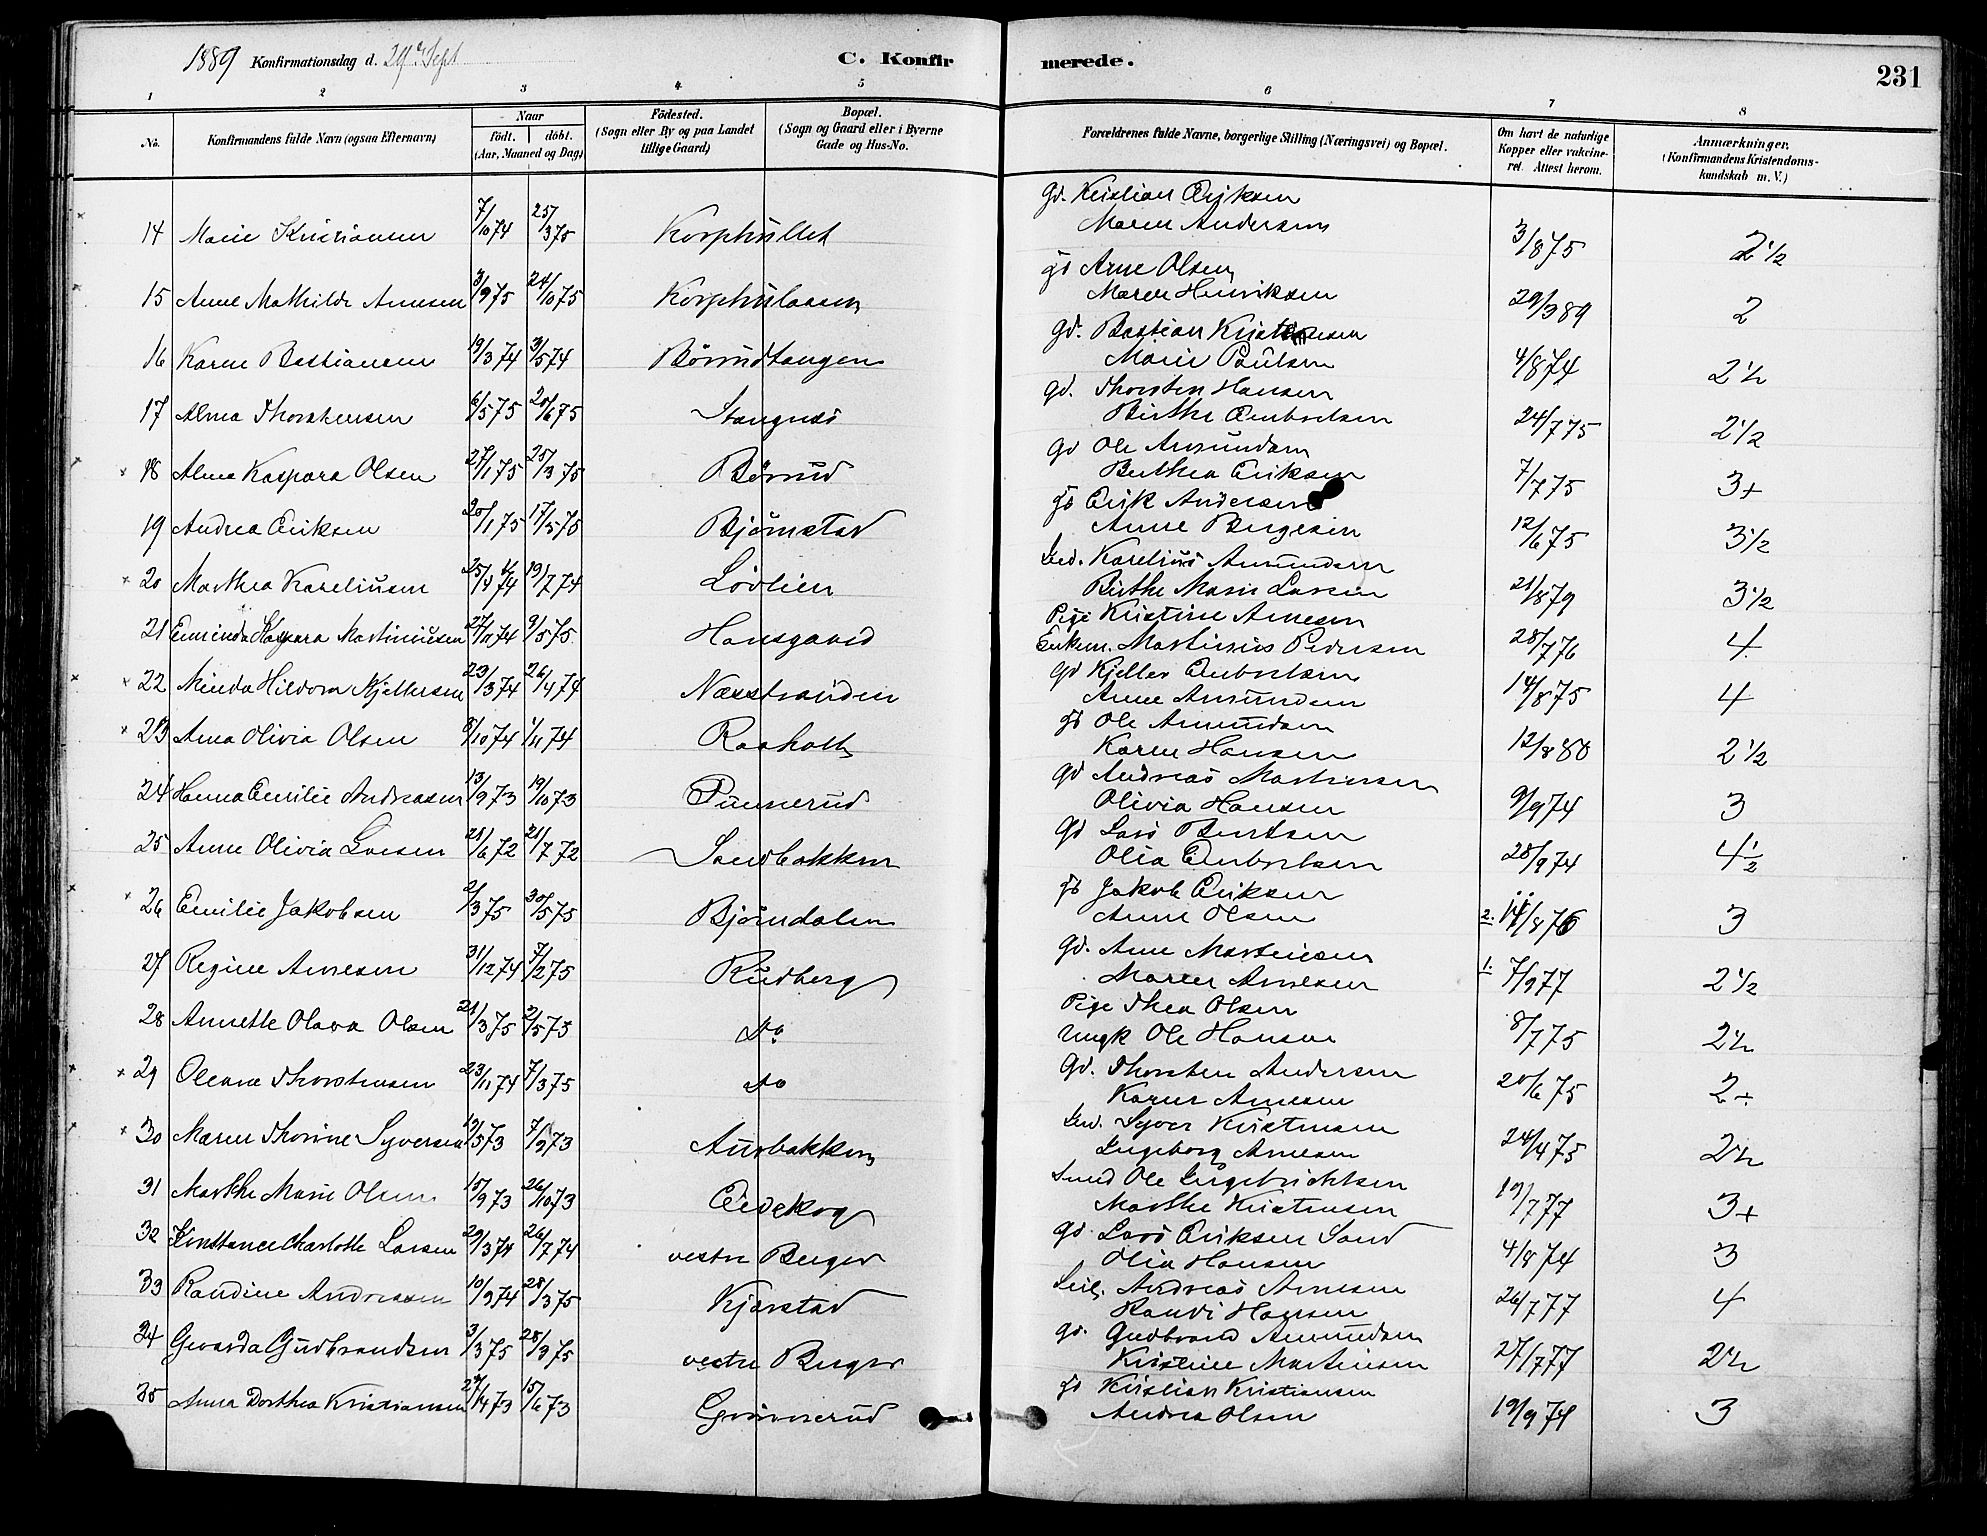 1889 Konfirmationsdag d. 29de Sept
C. Konfirmerede.
231
1 2 3 4 5 6 7 8
No. Konfirmandens fulde Navn (ogsaa Efternavn) Naar födt. döbt. (Aar, Maaned og Dag) Födested. (Sogn eller By og paa Landet tillige Gaard) Bopæl. (Sogn og Gaard eller i Byerne Gade og Hus-No. Forældrenes fulde Navne, borgerlige Stilling (Næringsvei) og Bopæl. Om havt de naturlige Kopper eller vakcineret. Attest herom. Anmærkninger. (Konfirmandens Kristendomskundskab m. V.)
14 Marie Kristiansen 7/10 74 25/3 75 Korphullet Gd. Kristian Eriksen
Maren Andersen 3/8 75 2 1/2
15 Anne Mathilde Arnesen 3/9 75 24/10 75 Korphulaasen Arne Olsen
Maren Henriksen 29/3 89 2
16 Karen Bastiansen 19/3 74 3/5 74 Börudtangen Gd. Bastian Kristiansen
Marie Paulsen 4/8 74 2 1/2
17 Alma Thorstensen 6/5 75 20/6 75 Stangnes Gd. Thorsten Hansen
Birthe Embretsen 24/7 75 2 1/2
18 Alma Kaspara Olsen 27/1 75 25/3 75 Börud Gd Ole Amundsen
Berthea Eriksen 7/7 75 3+
19 Andrea Eriksen 20/1 75 17/5 75 Björnstad Erik Andersen
Anne Birgesen 12/6 75 3 1/2
20 Marthea Kareliusen 25/4 74 19/7 74 Lövlien Karelius Amundsen
Birthe Marie Larsen 21/8 79 3 1/2
21 Emrinda Kaspara Martiniusen 27/11 74 9/5 75 Hansgaard Pige Kristine Arnesen
Enkem. Martinius Pedersen 28/7 76 4
22 Minda Hildora Kjellersen 23/3 74 26/4 74 Næsstranden Gd Kjeller Embretsen
Anne Amundsen 14/8 75 4
23 Anna Olivia Olsen 8/10 74 1/11 74 Raaholt Ole Amundsen
Karen Hansen 12/8 80 2 1/2
24 Hanna Emilie Andreasen 13/9 73 19/10 73 Punnerud Gd Andreas Martinsen
Olivia Hansen 9/9 74 3
25 Anne Olivia Larsen 28/6 72 21/7 72 Sandbakken Gd Lars Berntsen
Olia Embretsen 28/9 74 4 1/2
26 Emilie Jakobsen 2/3 75 30/5 75 Björndalen Jakob Eriksen
Anne Olsen 2. 11/8 76 3
27 Regine Arnesen 31/12 74 7/2 75 Rudberg Gd. Arne Martinsen
Maren Arnesen 1. 7/9 77 2 1/2
28 Annette Olava Olsen 21/3 75 2/5 75 do Pige Thea Olsen
Ungk Ole Hansen 8/7 75 2 1/2
29 Oleane Thorstensen 23/11 74 7/3 75 do Gd. Thorsten Andersen
Karen Arnesen 20/6 75 2÷
30 Maren Thorine Syversen 19/5 73 7/9 73 Aurbakken Syver Kristensen
Ingeborg Arnesen 24/4 75 2 1/2
31 Marthe Marie Olsen 15/9 73 26/10 73 Eidskog Smed Ole Ingebrichtsen
Marthe Kristensen 19/7 77 3+
32 Konstance Charlotte Larsen 29/3 74 26/7 74 vestre Berger Gd. Lars Eriksen Sand
Olia Hansen 4/8 74 3
33 Randine Andreasen 10/9 74 28/3 75 Kjærstad Andreas Arnesen
Randi Hansen 26/7 77 4
34 Gerarda Gudbrandsen 3/3 75 28/3 75 vestre Berger Gd. Gudbrand Amundsen
Kristine Martinsen 27/7 77 2 1/2
35 Anna Dorthea Kristiansen 27/4 73 15/6 73 Grönnerud Kristian Kristiansen
Andrea Olsen 19/9 74 3